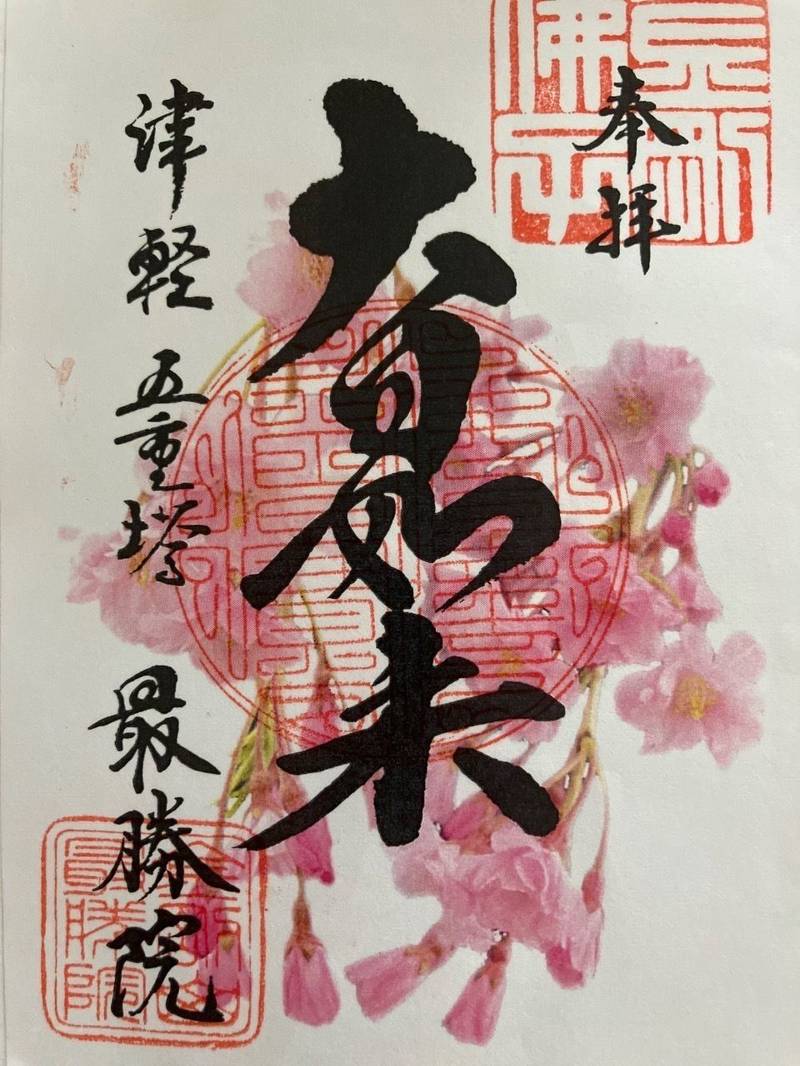 奉拝
大日如来
津軽 五重塔 最勝院
金剛山
最勝院